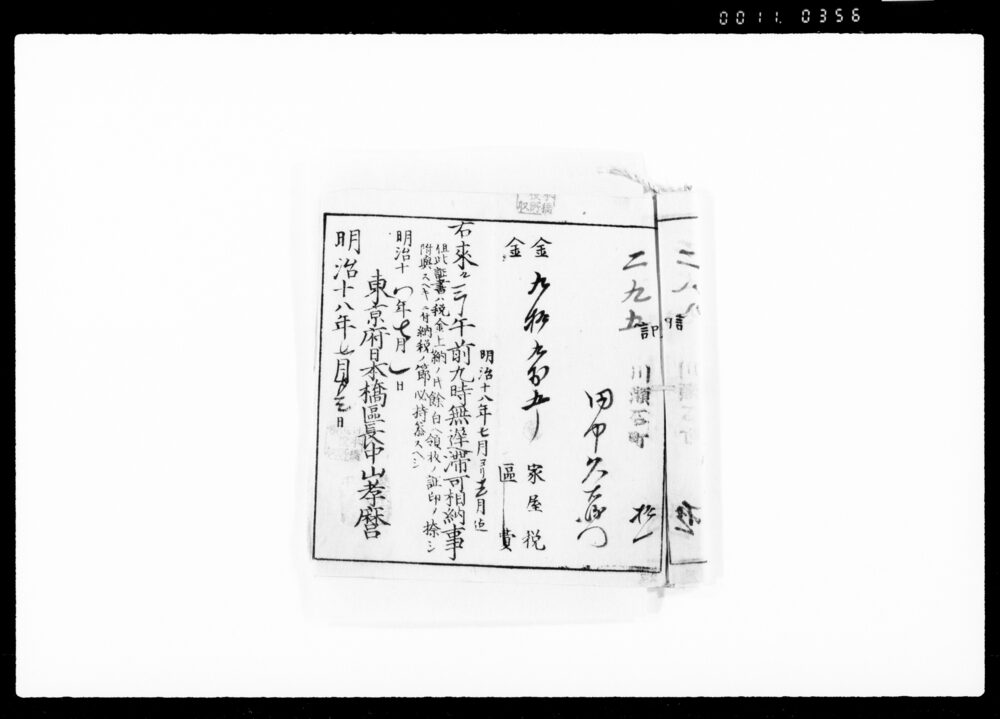 0011.0356
二九九
川瀬石町
拾一
記
田中久右衛門
金 九拾九銭五厘 家屋税
金 區費
明治十八年七月ヨリ十二月迄
右來ル三日午前九時無遅滞可相納事
但此証書ハ税金上納ノ片餘白ヘ領収ノ証印ヲ捺シ
附與スヘキニ付納税ノ節必持参スヘシ
明治十八年七月一日
東京府日本橋區長中山孝麿
明治十八年七月 日